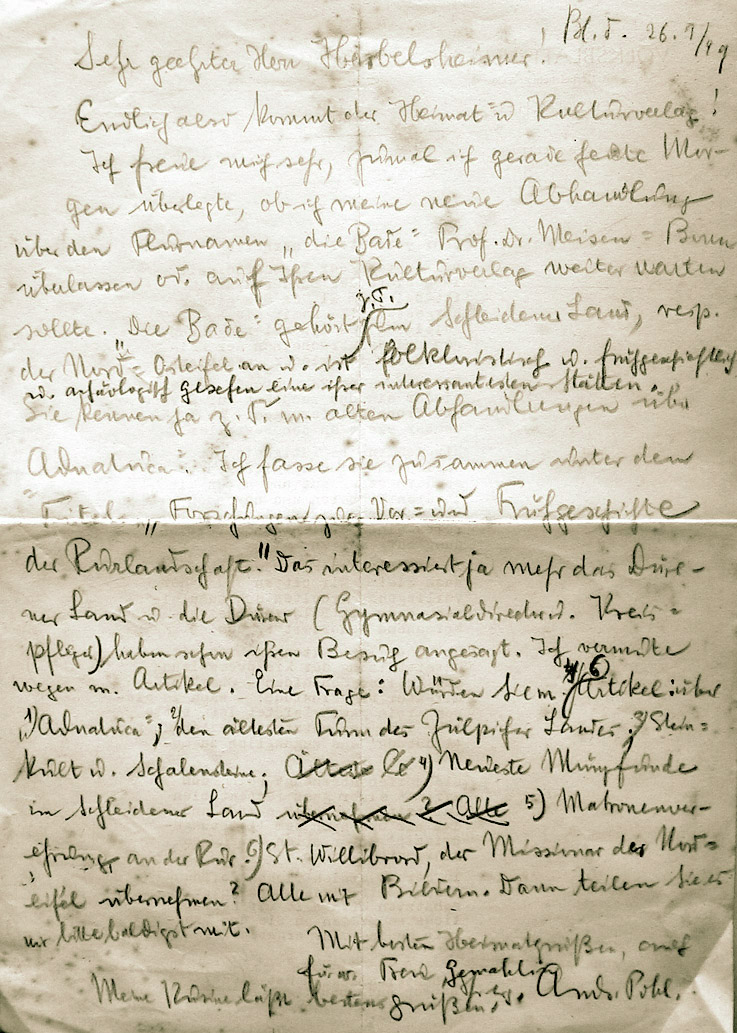 Bl.d. 26.9/49
Sehr geehrter Herr Herbelsheimer!
Endlich also kommt der Heimat u Kulturverlag!
Ich freue mich sehr, zumal ich gerade heute Mor-
gen überlegte, ob ich meine neue Abhandlung
über den Flurnamen „die Bade" Prof. Dr. Meisen = Bonn
überlassen od. auf Ihren Kulturverlag weiter warten
sollte. Die „Bade" gehört z.T. zum Schleidener Land, resp.
der Nord= Osteifel an u. ist folkloristisch u. frühgeschichtlich
u. archäologisch gesehen eine ihrer interessantesten Stätten.
Sie kennen ja z. T. m. alten Abhandlungen über
Aduatuca". Ich fasse sie zusammen unter dem
Titel „Forschungen zur Vor= und Frühgeschichte
der Rurlandschaft." Das interessiert ja mehr das Düre-
ner Land u. die Dürener (Gymnasialdirektor u. Kreis=
pfleger) haben schon ihren Bezug angesagt. Ich vermute
wegen m. Artikel. Eine Frage: Würden Sie m. 6 Artikel: über
1) „Aduatuca", 2) den ältesten Turm des Zülpicher Landes, 3) Stein=
kult u. Schalensteine, 4) Neueste Münzfunde
im Schleidener Land 5) Matronenver-
ehrung an der Rur. 6) St. Willibrord, der Missionar der Nord=
eifel übernehmen? Alle mit Bildern. Dann teilen Sie es
mir bitte baldigst mit.
Mit besten Heimatgrüßen, auch
für Frau Gemahlin
Meine Kusine läßt bestens grüßen, Ihr Andr. Pohl.